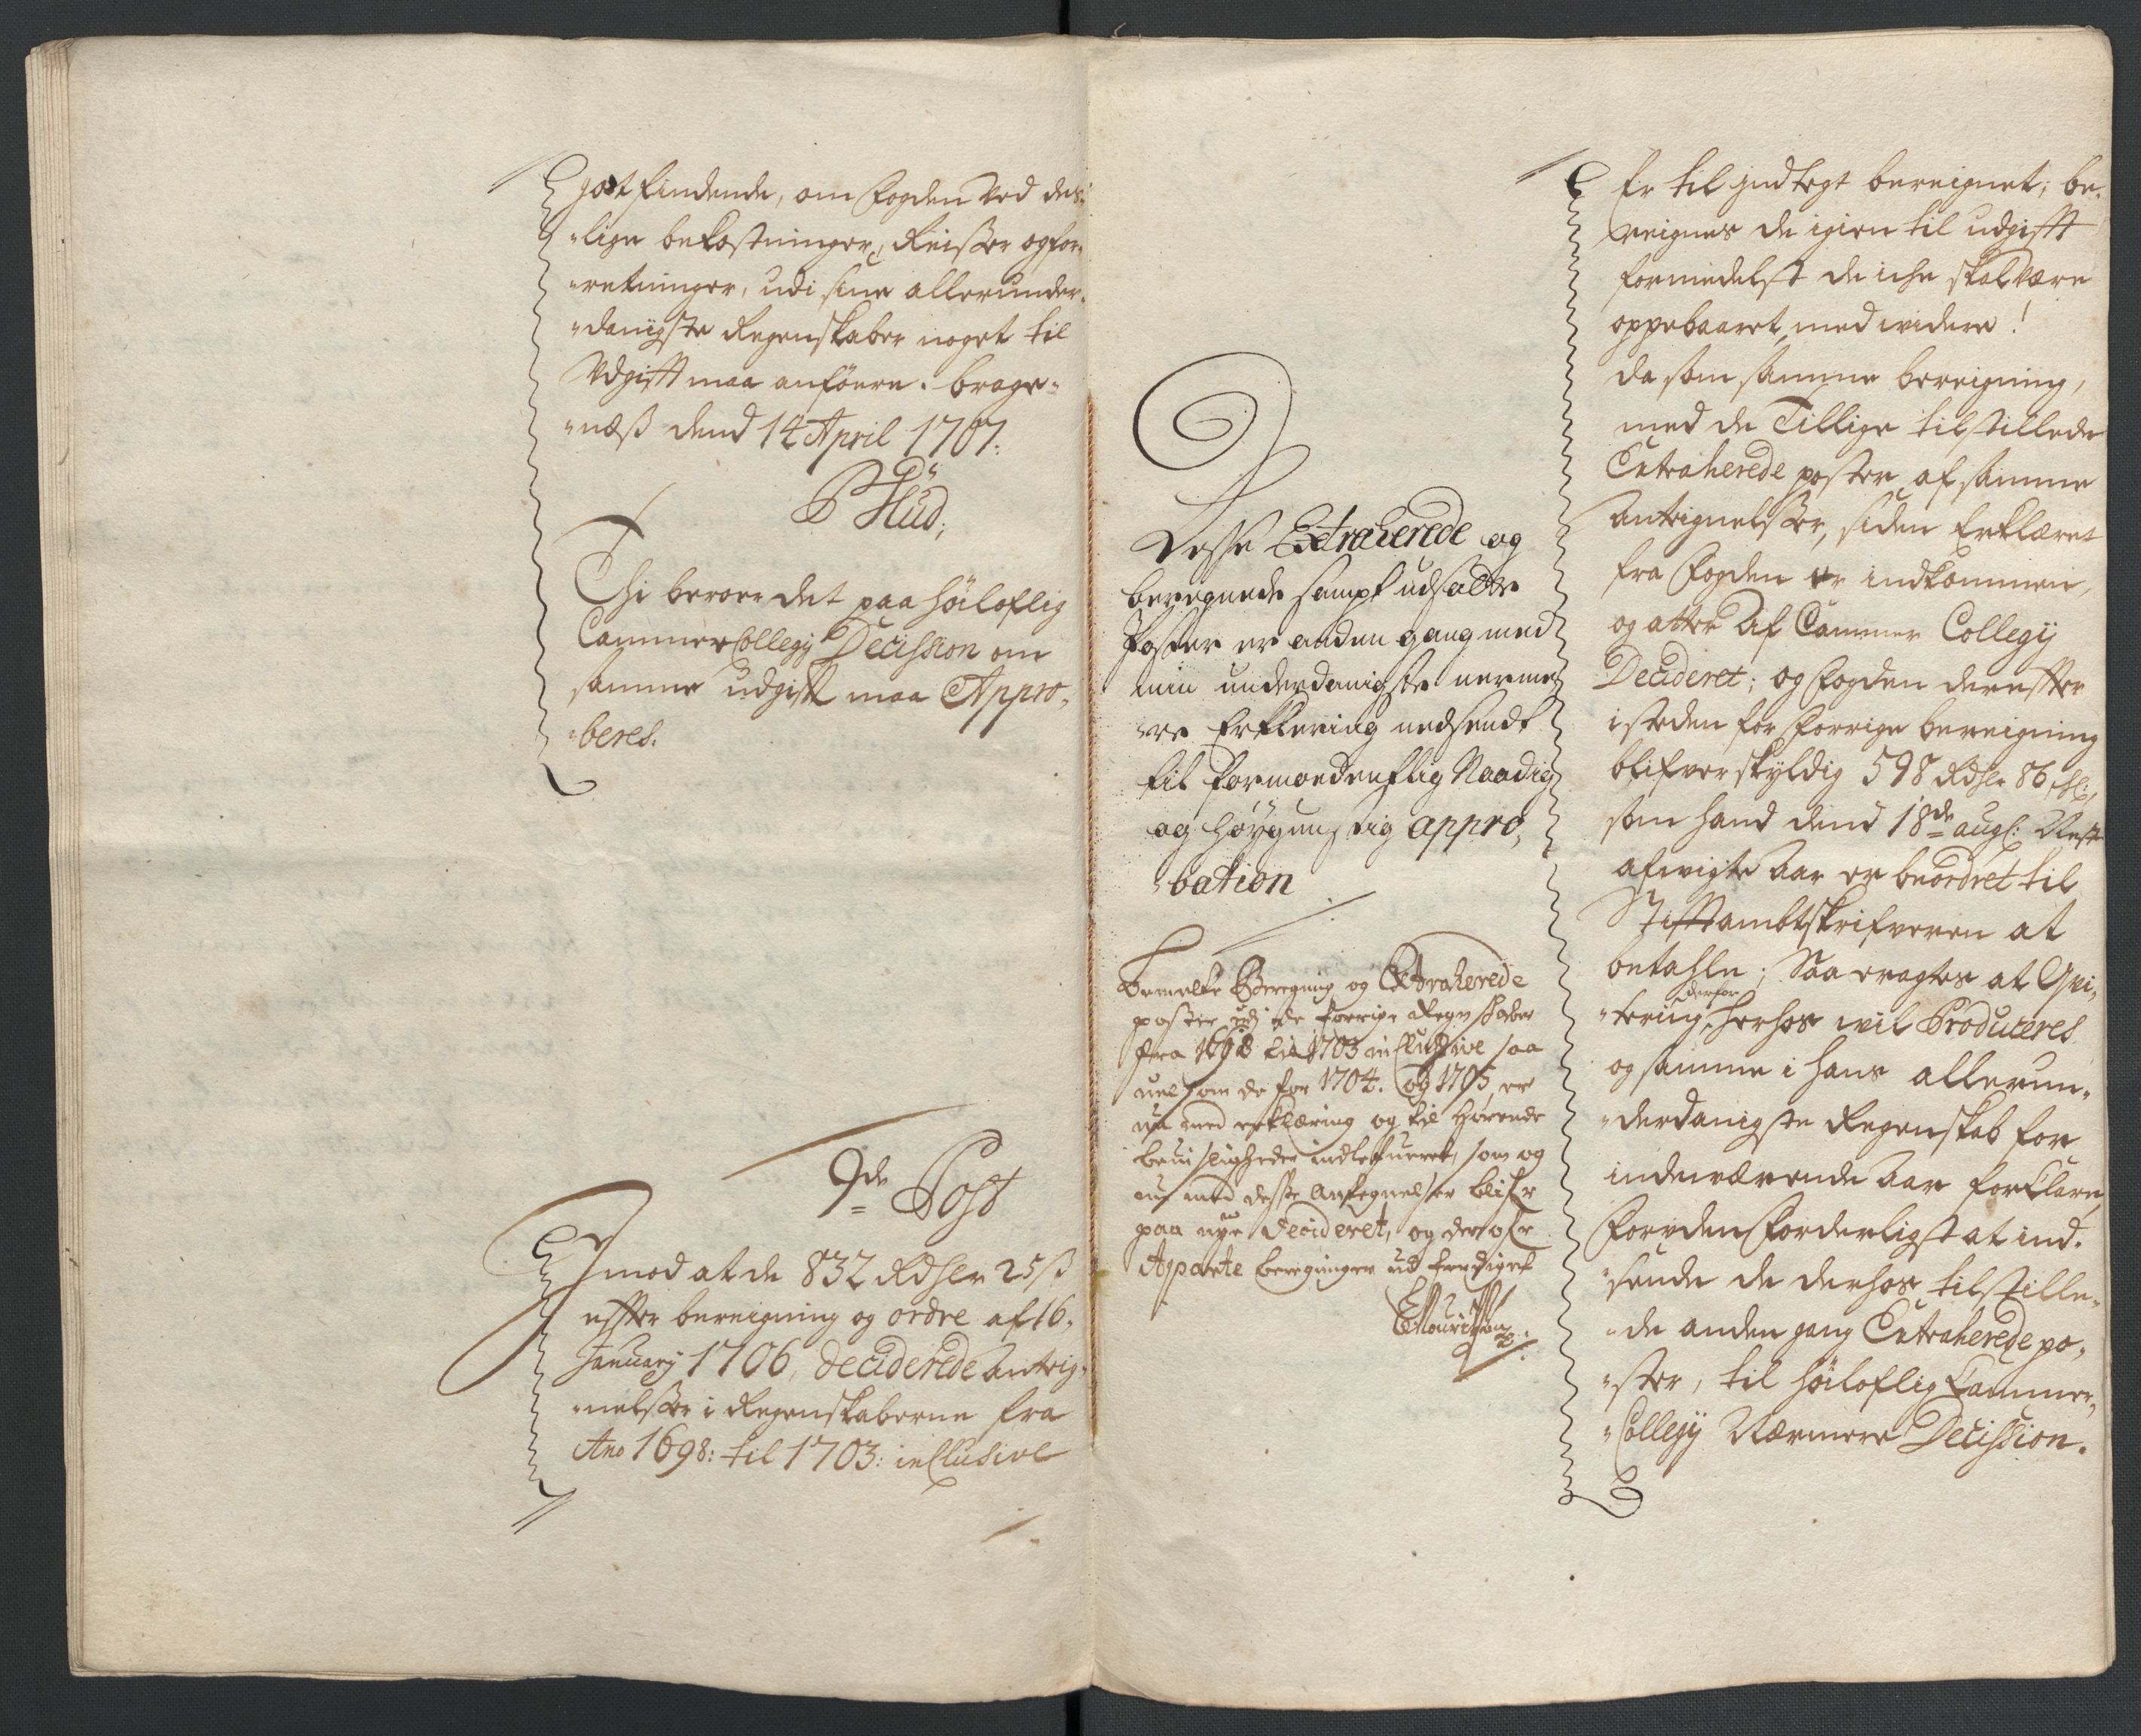 got findende, om Fogden ved des-
-lige bekostninger, Reisser og for-
-retninger, udi sine allerunder-
-danigste Regenskaber noget til
Udgifft maa anføere. brage-
-næss dend 14 April 1707.
PHüd,
Thi beroer det paa høiloflig
Cammer Collegij Decission om
samme udgifft maa Appro-
-beres.
9de Post
Imod at de 832 Rdler 25 ß
effter bereigning og ordre af 16.
January 1706, deciderede anteig-
-nelsser i Regenskaberne fra
Ano 1698: til 1703: incllusive
Desse Extraherede og
beregnede sampt udsatte
Poster er anden gang med
min underdanigste nerme-
-re Erklering nedsendt
til formoedentlig Naadig
og høygunstig appro,
-bation
Bemelte Beregning og Extraherede
poster udj de forrige Regnskaber
fra 1698 til 1703 incllusive saa
uel som de for 1704. og 1705, er
nu med erklæring og til hørende
beuisligheder indlefueret, som og
nu med desse Antegnelser blifr
paa nye Decideret, og der ofr
Aparte beregninger ud ferdiget
Er til indtegt bereignet; be-
reignes de igien til udgifft
formedelst de iche skal være
oppebaaret, med widere!
da som samme bereigning,
med de Tillige tilstillede
Extraherede poster af samme
anteignelsser, siden Erklæret
fra Fogden er indkommen,
og atter Af Cammer Collegij
Decideret; og Fogden dereffter
isteden for Forrige bereigning
blifver skyldig 598 Rdler 86 ſhl:
som hand dend 18de augl: Nest
afvigte aar er beordret til
Stifftambtskrifveren at
betahle; Saa eragtes at Qvi-
derfor
-tering, herhos wil Produceres
og samme i hans allerun-
-derdanigste Regenskab for
indeværende aar forklare,
Foruden Forderligst at ind-
-sende de derhos tilstille-
-de anden gang Extraherede po-
-ster, til høiloflig Cammer-
-Collegij Nærmere Decission.